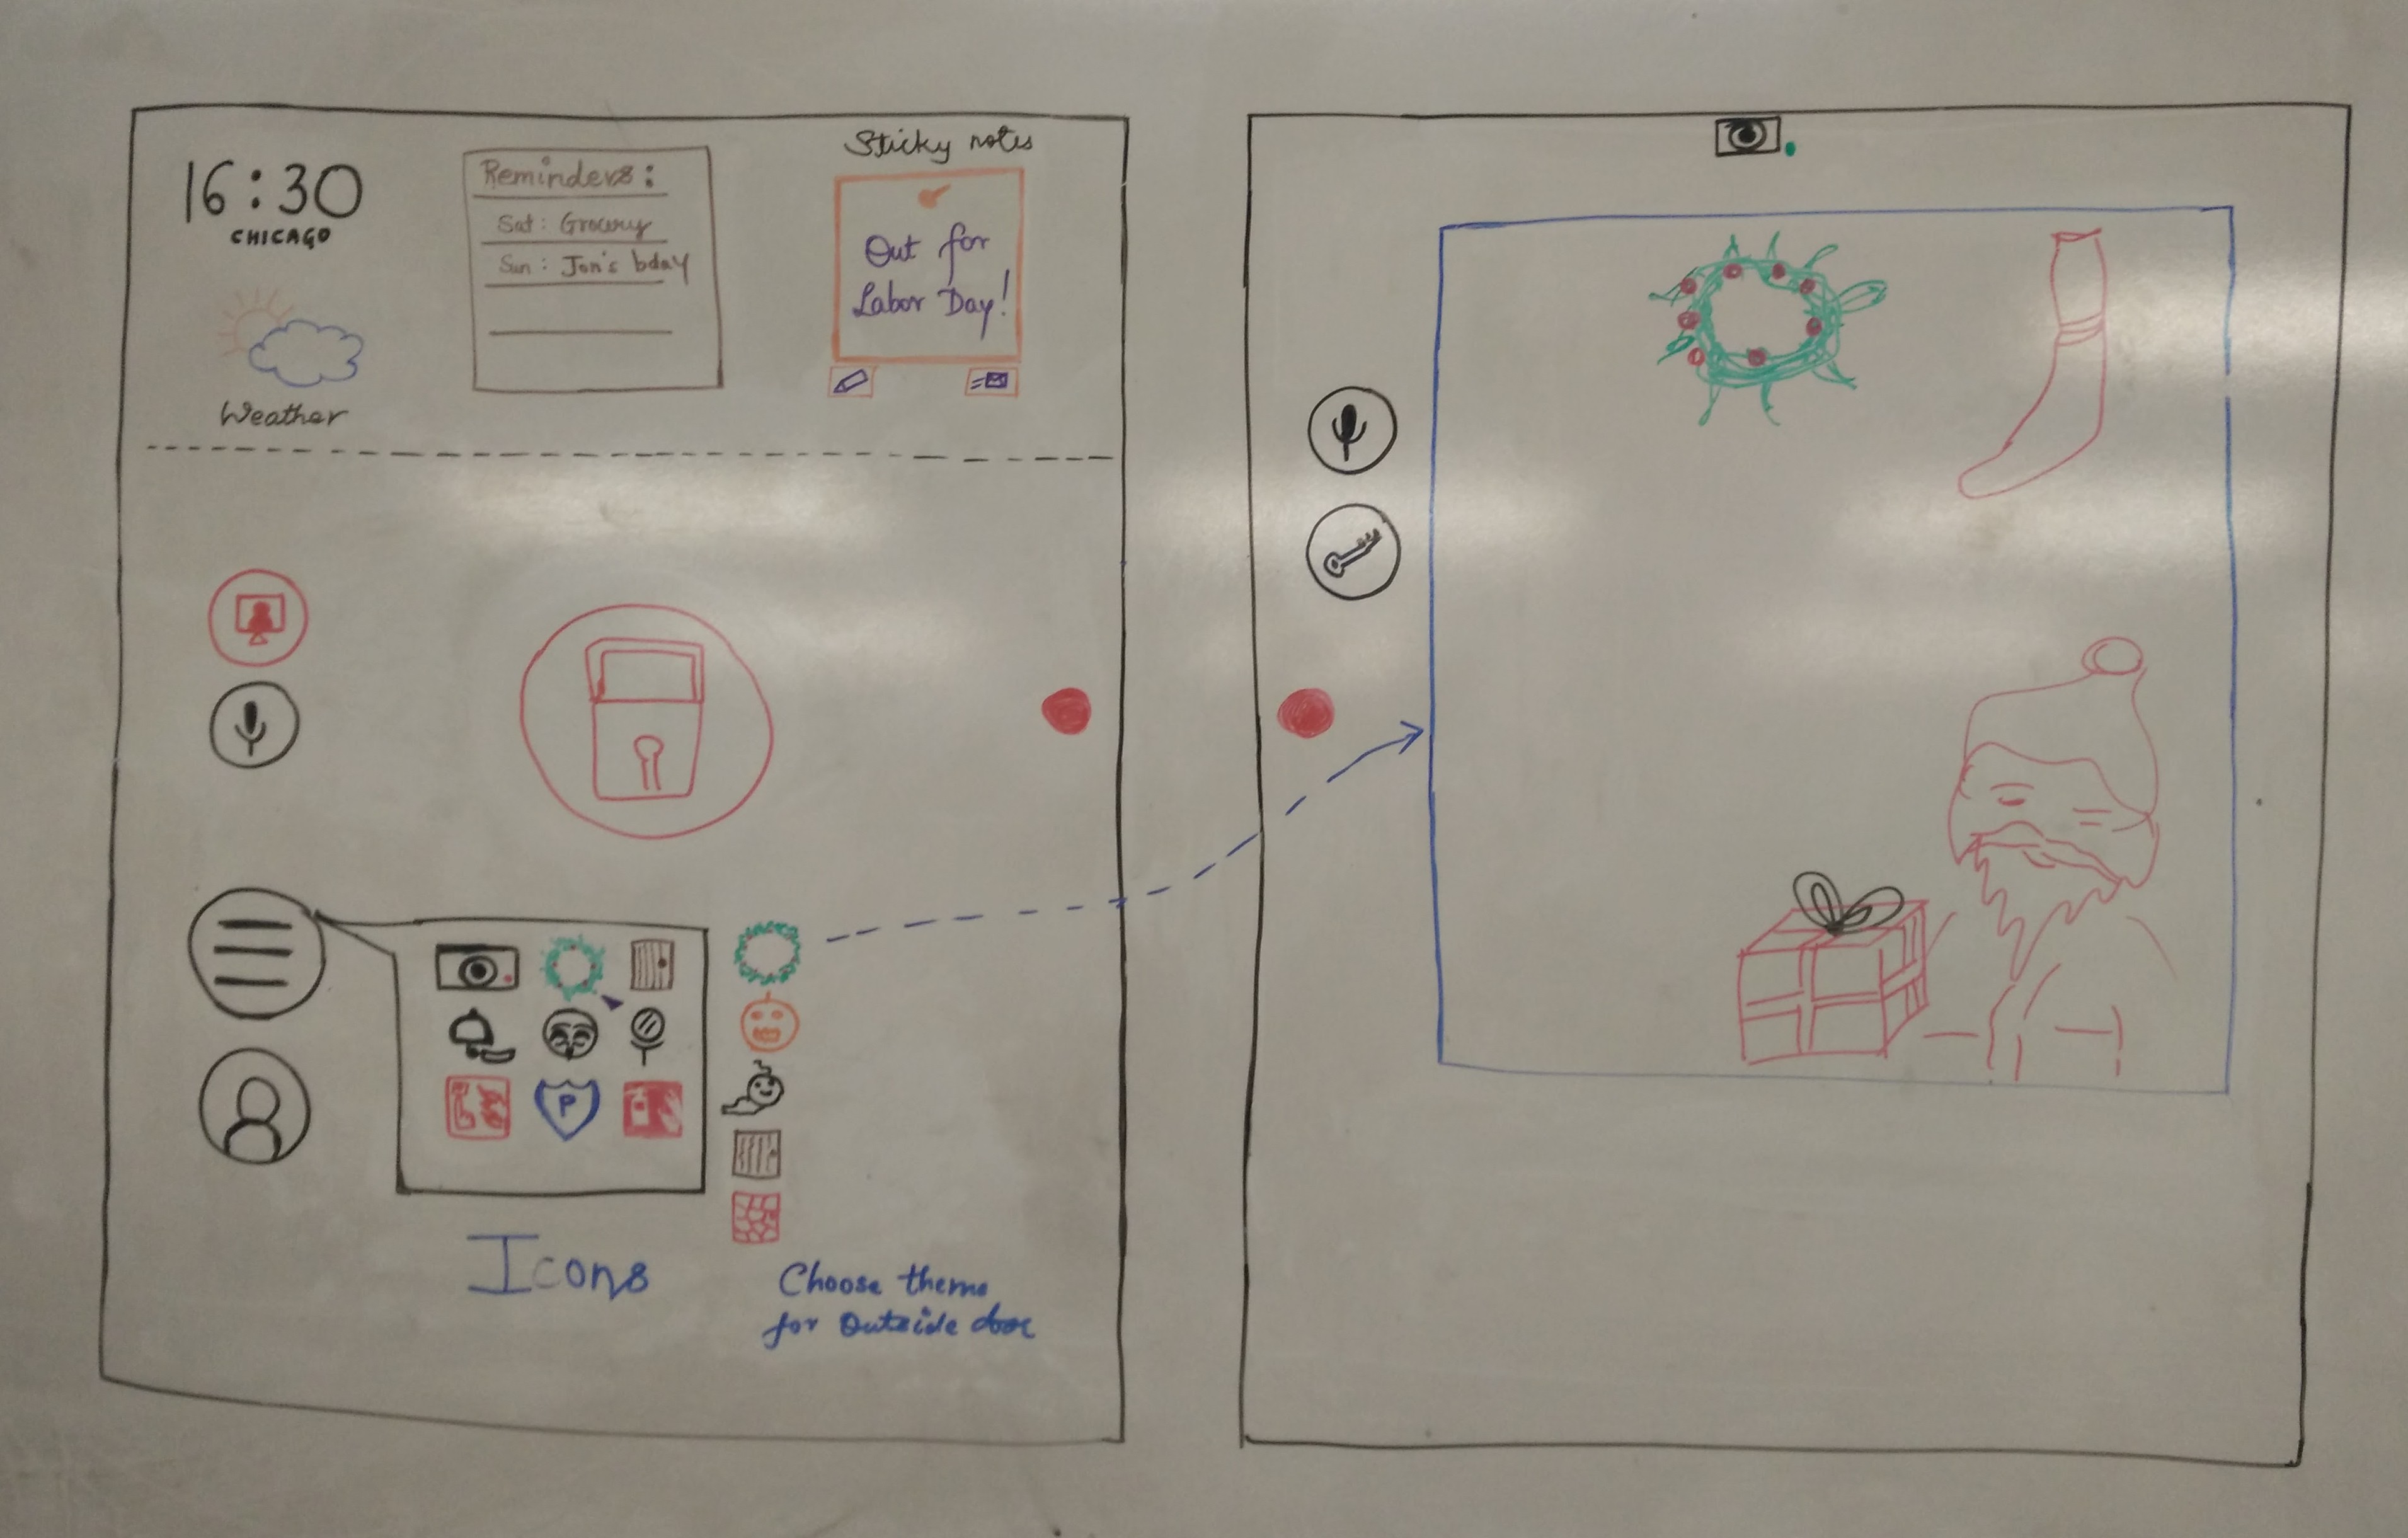 16:30
CHICAGO
Weather
Reminders:
Sat: Grocery
Sun: Jon's bday
Sticky notes
Out for
Labor Day!
P
Icons
Choose theme
for Outside door